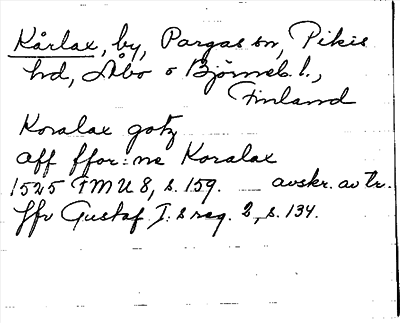 Kårlax, by, Pargas sn, Pikis
hd, Åbo o Björneb. l.,
Finland
Koralax gotz
aff ffor:ne Koralax
1525 FMU 8, s. 159. — avskr. av tr.
jfr Gustaf I:s reg. 2, s. 134.